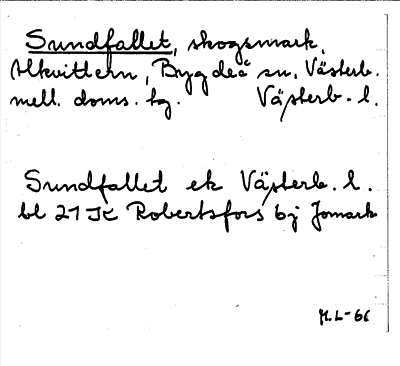 Sundfallet, skogsmark,
Ulkvittern, Bygdeå sn, Västerb.
mell. doms. hg. Västerb. l.
Sundfallet ek Västerb. l.
bl 21 Robertsfors bj Jomark
M.L-66